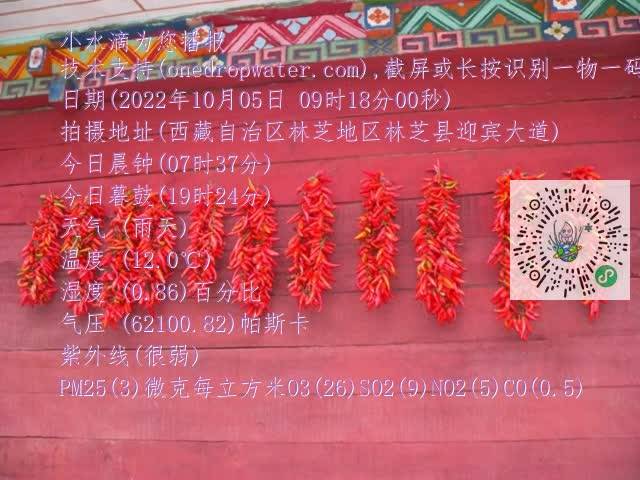 小水滴为您播报
技术支持(onedropwater.com),截屏或长按识别一物一码
日期(2022年10月05日 09时18分00秒)
拍摄地址(西藏自治区林芝地区林芝县迎宾大道)
今日晨钟(07时37分)
今日暮鼓(19时24分)
天气 (雨天)
温度 (12.0℃)
湿度 (0.86)百分比
气压 (62100.82)帕斯卡
紫外线(很弱)
PM25(3)微克每立方米O3(26)SO2(9)NO2(5)CO(0.5)